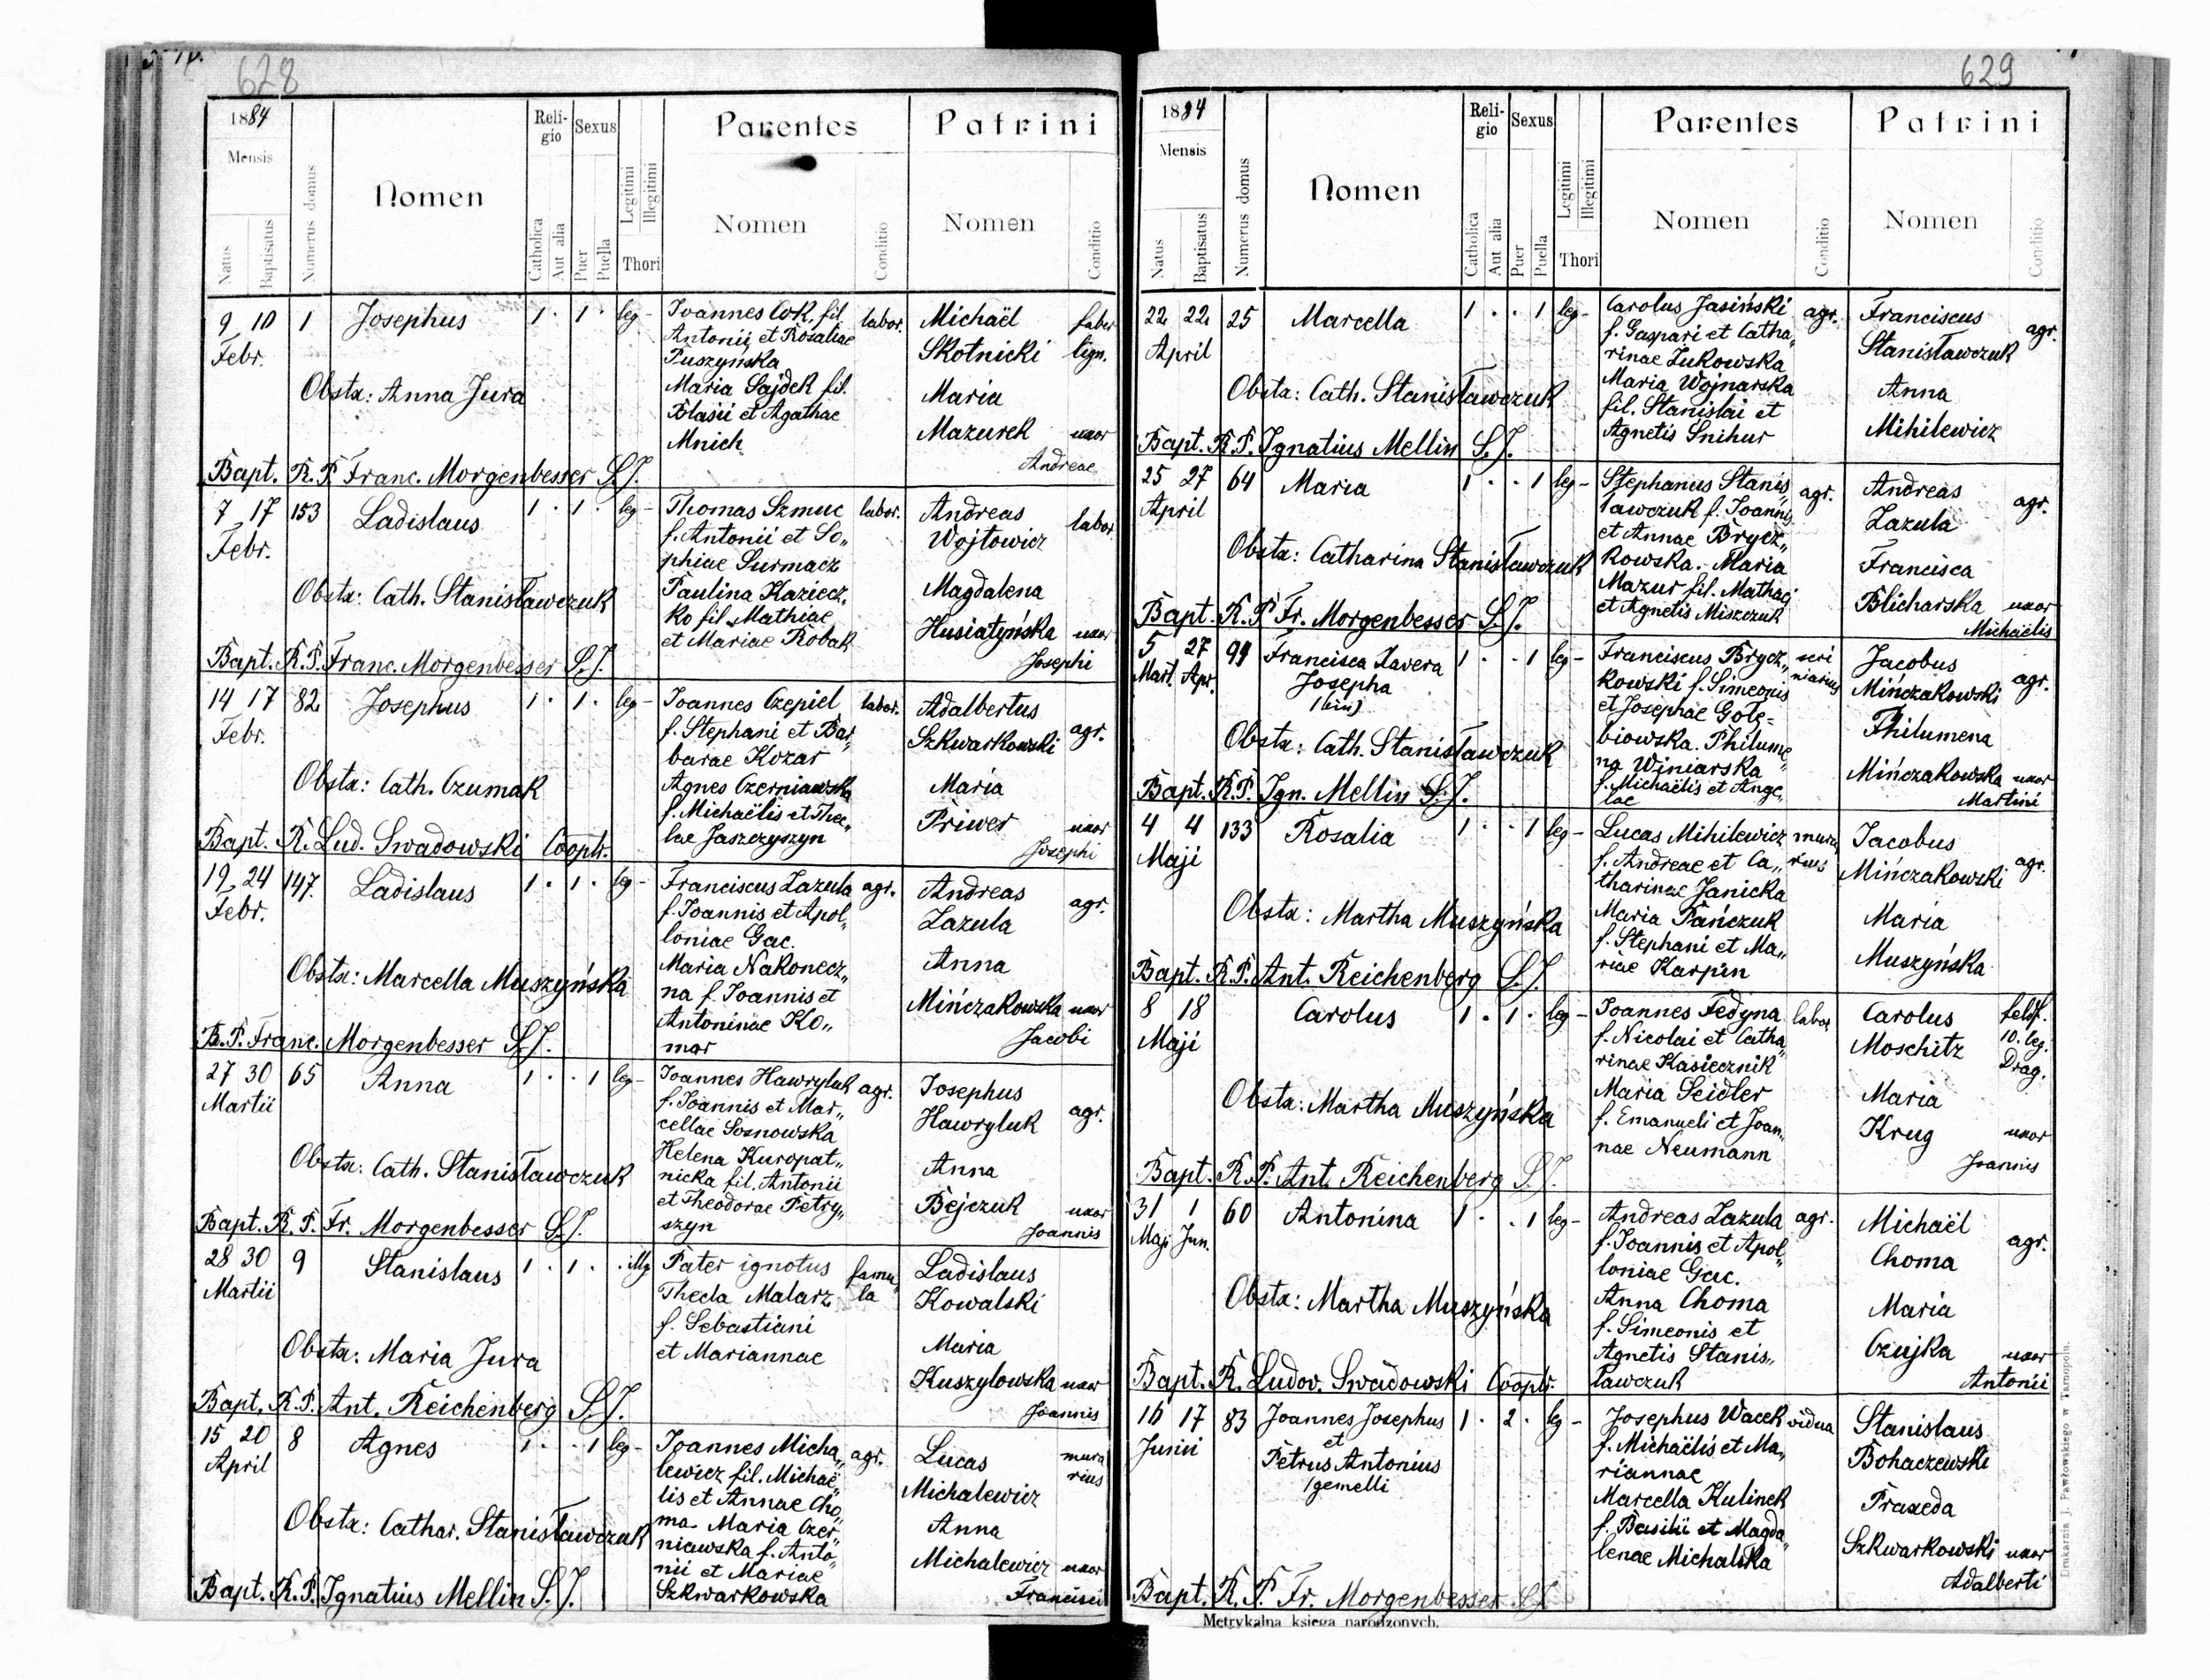 628
1884
Mensis
Natus
Baptisatus
Numerus domus
Nomen
Religio
Catholica
Aut alia
Sexus
Puer
Puella
Legitimi
Illegitimi
Thori
Parentes
Nomen
Conditio
Patrini
Nomen
Conditio
9 10 1 Josephus 1 . 1 . leg-
Febr.
Obstx: Anna Jura
Joannes Cok, fil labor.
Antonii et Rosaliae
Puszyńska
Maria Sajdek fil.
Blasii et Agathae
Mnich
Michaël faber
Skotnicki lign.
Maria
Mazurek uxor
Andreae
Bapt. R.P. Franc. Morgenbesser S.J.
7 17 153 Ladislaus 1 . 1 . leg-
Febr.
Obstx: Cath. Stanisławczuk
Thomas Szmuc labor.
f. Antonii et So„
phiae Surmacz
Paulina Kaziecz„
ko fil. Mathiae
et Mariae Robak
Andreas labor
Wojtowicz
Magdalena
Husiatyńska uxor
Josephi
Bapt. R.P. Franc. Morgenbesser S.J.
14 17 82 Josephus 1 . 1 . leg-
Febr.
Obstx: Cath. Czumak
Joannes Czepiel labor.
f. Stephani et Bar„
barae Kozar
Agnes Czerniawska
f. Michaëlis et Thec„
lae Jaszczyszyn
Adalbertus
Szkwarkowski agr.
Maria
Priwer uxor
Josephi
Bapt. R. Lud. Swadowski Cooptr.
19 24 147. Ladislaus 1 . 1 . leg-
Febr.
Obstx: Marcella Muszyńska
Franciscus Zazula agr.
f. Joannis et Apol„
loniae Gac.
Maria Nakonecz„
na f. Joannis et
Antoninae Ko„
mar
Andreas agr.
Zazula
Anna
Mińczakowska uxor
Jacobi
B.P. Franc. Morgenbesser S.J.
27 30 65 Anna 1 . . 1 leg-
Martii
Obstx: Cath. Stanisławczuk
Joannes Hawryluk agr.
f. Joannis et Mar„
cellae Sosnowska
Helena Kuropat„
nicka fil. Antonii
et Theodorae Petry„
szyn
Josephus
Hawryluk agr.
Anna
Bejczuk uxor
Joannis
Bapt. R.P. Fr. Morgenbesser S.J.
28 30 9 Stanislaus 1 . 1 . . illg
Martii
Obstx: Maria Jura
Pater ignotus famu„
Thecla Malarz la
f. Sebastiani
et Mariannae
Ladislaus
Kowalski
Maria
Kuszylowska uxor
Joannis
Bapt. R.P. Ant. Reichenberg S.J.
15 20 8 Agnes 1 . . 1 leg-
April
Obstx: Cathar. Stanisławczuk
Joannes Micha„ agr.
lewicz fil. Michaë„
lis et Annae Cho„
ma- Maria Czer„
niawska f. Anto„
nii et Mariae
Szkwarkowska
Lucas mura
rius
Michalewicz
Anna
Michalewicz uxor
Francisci
Bapt. R.P. Ignatius Mellin S.J.
629
1884
Mensis
Natus
Baptisatus
Numerus domus
Nomen
Religio
Catholica
Aut alia
Sexus
Puer
Puella
Legitimi
Illegitimi
Thori
Parentes
Nomen
Conditio
Patrini
Nomen
Conditio
22 22 25 Marcella 1 . . 1 leg-
April
Obstx: Cath. Stanisławczuk
Carolus Jasiński agr.
f. Gaspari et Catha„
rinae Żukowska
Maria Wojnarska
fil. Stanislai et
Agnetis Snihur
Franciscus agr.
Stanisławczuk
Anna
Mihilewicz
Bapt. R.P. Ignatius Mellin S.J.
25 27 64 Maria 1 . . 1 leg-
April
Obstx: Catharina Stanisławczuk
Stephanus Stanis„ agr.
ławczuk f. Joannis
et Annae Brycz„
kowska. Maria
Mazur fil. Mathaei
et Agnetis Miszczuk
Andreas agr.
Zazula
Francisca
Blicharska uxor
Michaëlis
Bapt. R.P. Fr. Morgenbesser S.J.
5 27 99 Francisca Xavera 1 . . 1 leg-
Mart. Apr. Josepha
(bin)
Obstx: Cath. Stanisławczuk
Franciscus Brycz„ scri
kowski f. Simeonis niarius
et Josephae Gołę=
biowska. Philume„
na Winiarska
f. Michaëlis et Ange„
lae
Jacobus
Mińczakowski agr.
Philumena
Mińczakowska uxor
Martini
Bapt. R.P. Ign. Mellin S.J.
4 4 133 Rosalia 1 . . 1 leg-
Maji
Obstx: Martha Muszyńska
Lucas Mihilewicz mura„
f. Andreae et Ca„ rius
tharinae Janicka
Maria Pańczuk
f. Stephani et Ma„
riae Karpin
Jacobus
Mińczakowski agr.
Maria
Muszyńska
Bapt. R.P. Ant. Reichenberg S.J.
8 18 Carolus 1 . 1 . leg-
Maji
Obstx: Martha Muszyńska
Joannes Fedyna labor
f. Nicolai et Catha„
rinae Kasiecznik
Maria Seidler
f. Emanueli et Joan„
nae Neumann
Carolus feldf.
Moschitz 10. leg.
Drag.
Maria
Krug uxor
Joannis
Bapt. R.P. Ant. Reichenberg S.J.
31 1 60 Antonina 1 . . 1 leg-
Maji Jun.
Obstx: Martha Muszyńska
Andreas Zazula agr.
f. Joannis et Apol„
loniae Gac.
Anna Choma
f. Simeonis et
Agnetis Stanis„
ławczuk
Michaël
Choma agr.
Maria
Czujka uxor
Antonii
Bapt. R. Ludov. Swadowski Cooptr.
16 17 83 Joannes Josephus 1 . 2 . leg-
Junii et
Petrus Antonius
/gemelli
Josephus Wacek vidua
f. Michaëlis et Ma„
riannae
Marcella Kulinek
f. Basilii et Magda„
lenae Michalska
Stanislaus
Bohaczewski
Praxeda
Szkwarkowski uxor
Adalberti
Bapt. R.P. Fr. Morgenbesser S.J.
Metrykalna księga narodzonych.
Drukarnia J. Pawłowskiego w Tarnopolu.